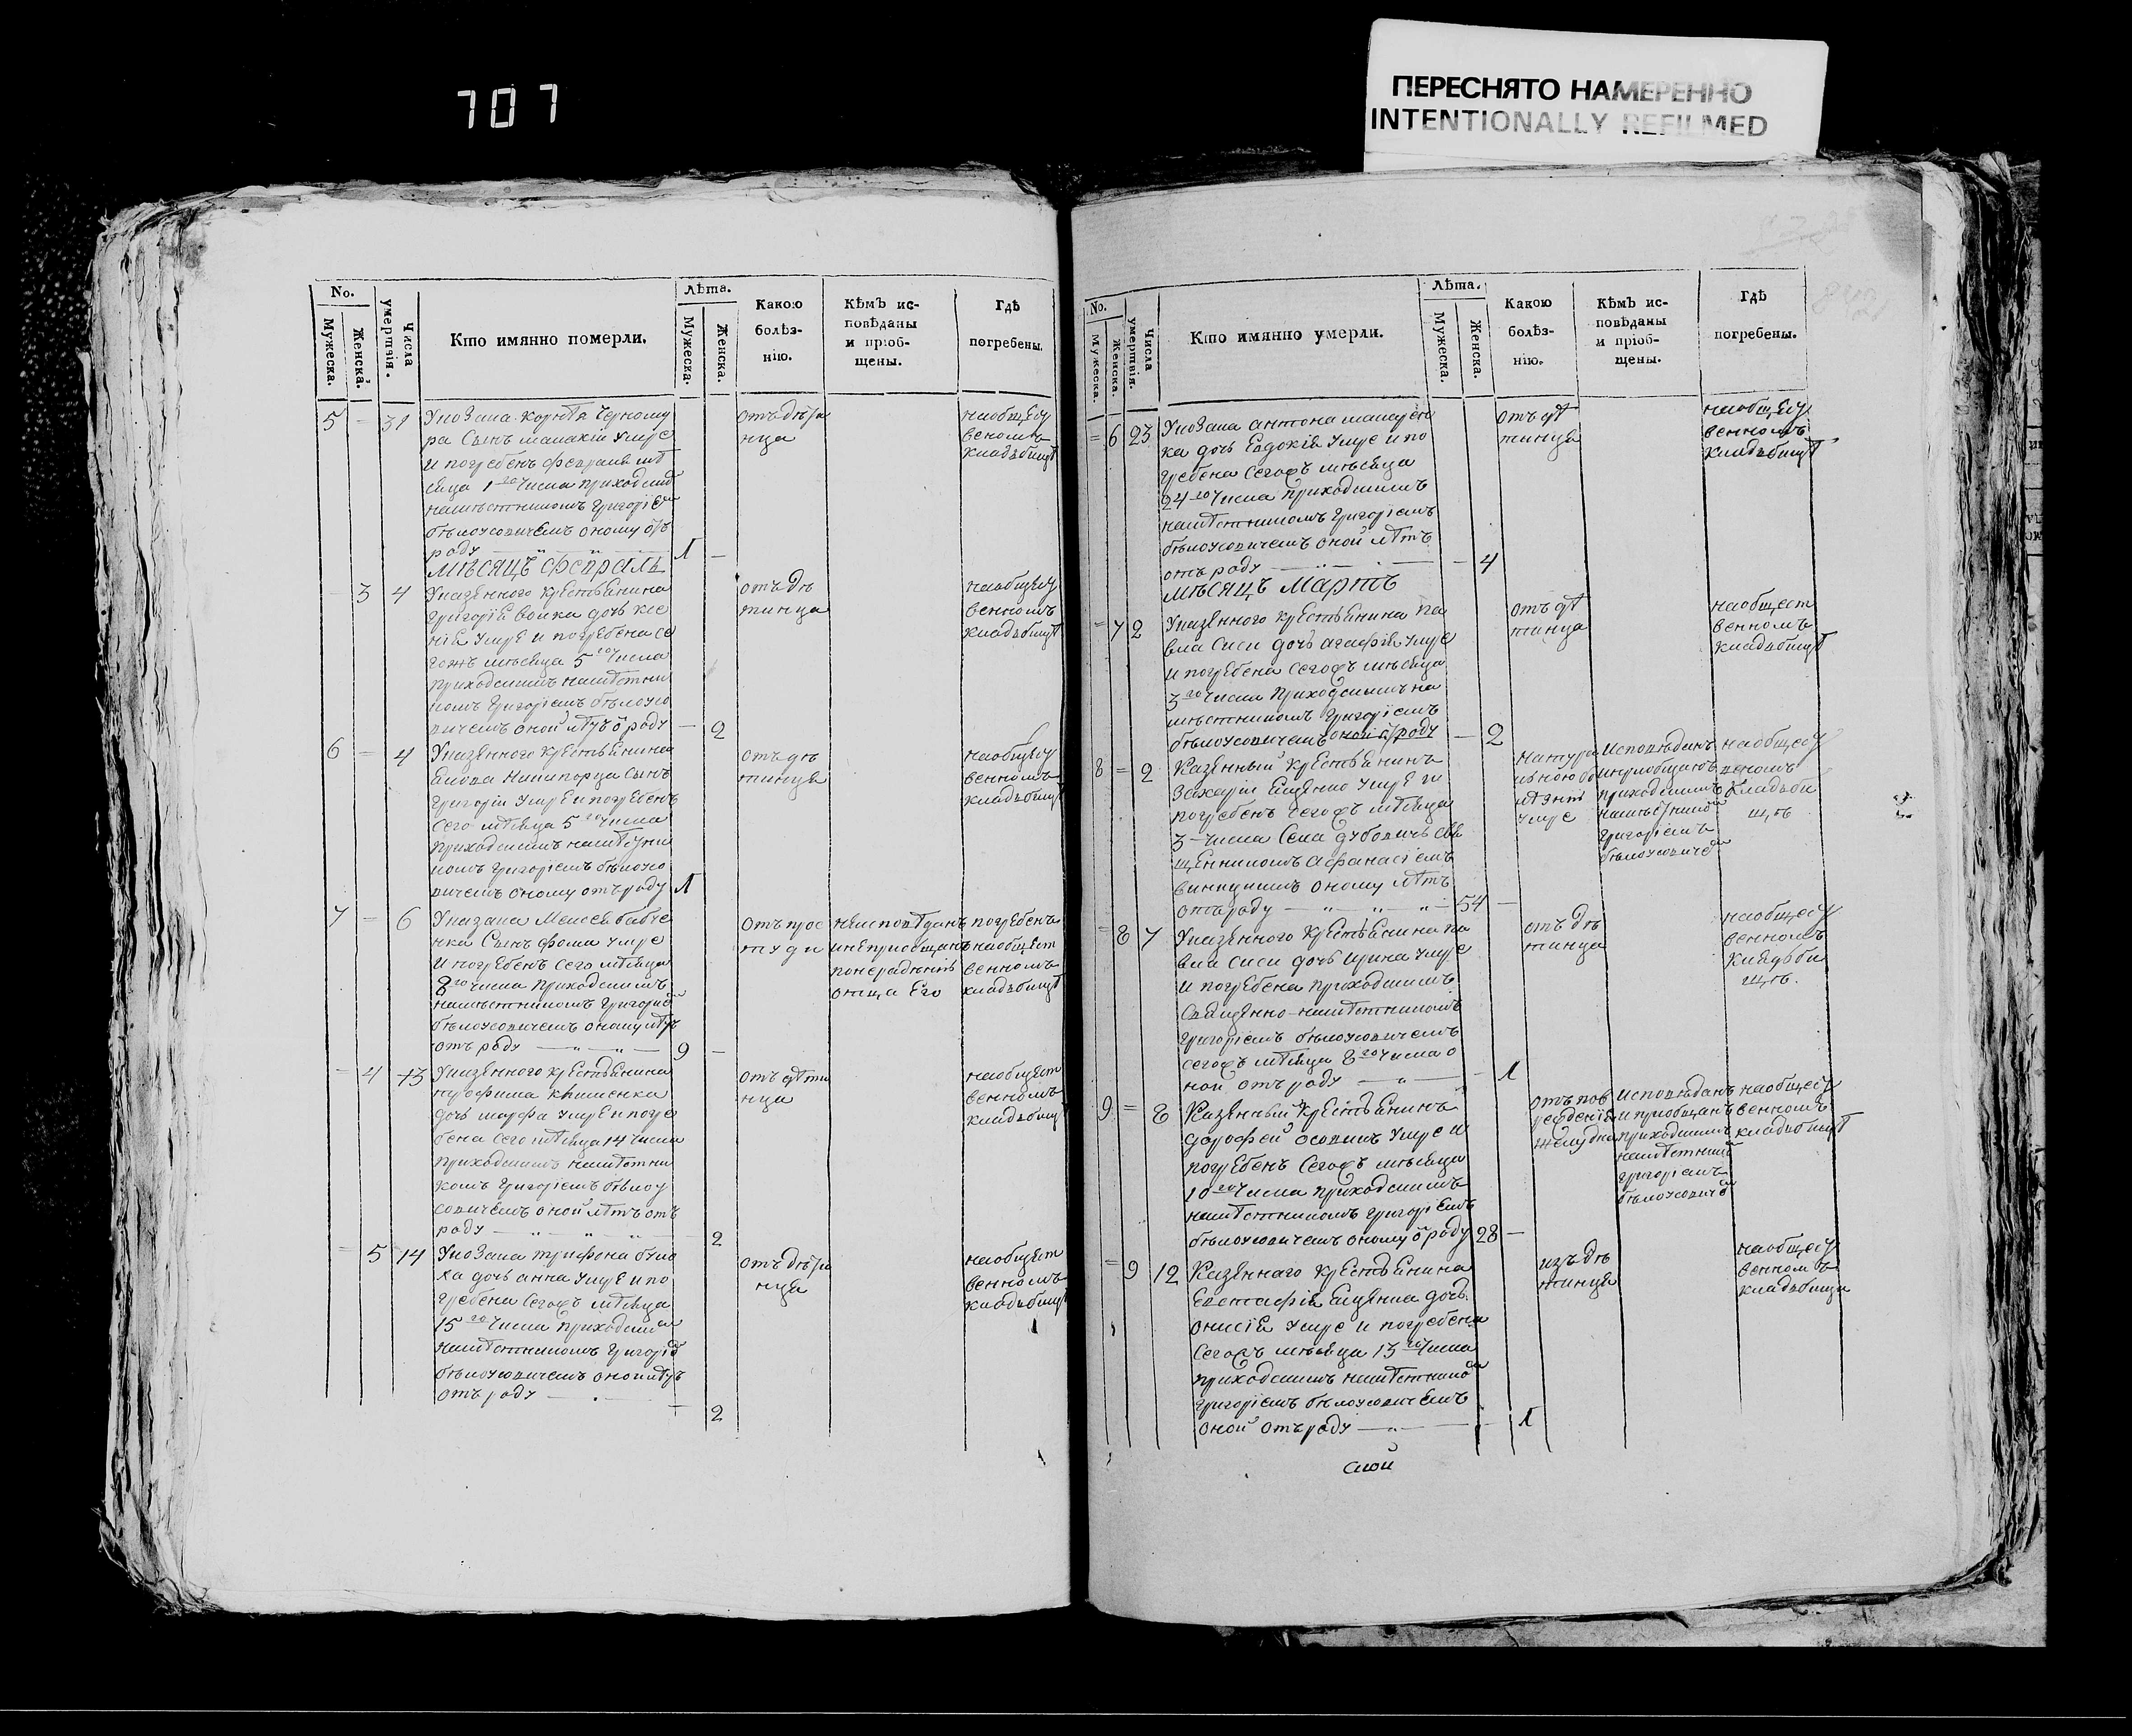 707
ПЕРЕСНЯТО НАМЕРЕННО
INTENTIONALLY REFILMED
No.
Мужеска.
Женска.
Числа умертвія.
Кто имянно померли.
Лѣта.
Мужеска.
Женска.
Какою болѣз-
нію.
Кѣмъ ис-
повѣданы
и пріоб-
щены.
Гдѣ
погребены.
5 - 31 У козака Корнѣя Черному
ра сынъ Малахіи умре
и погребенъ февраля мѣ
сяца 1го числа приходскимъ
намѣстникомъ Григоріем
Бѣлоусовичемъ оному отъ
роду 1 -
отъ дѣти
нца
на общест
венномъ
кладбищѣ
мѣсяцъ февраль
- 3 4 У казенного крестьянина
Григорія Вовка дочь Ксе
нія умре и погребена се
гожъ мѣсяца 5го числа
приходскимъ намѣстни
комъ Григоріемъ Бѣлоусо
вичемъ оной лѣтъ отъ роду - 2
отъ дѣ
тинца
на общест
венномъ
кладбищѣ
6 - 4 У казенного крестьянина
Якова Ничипорца сынъ
Григоріи умре и погребенъ
сего мѣсяца 5го числа
приходскимъ намѣстни
комъ Григоріемъ Бѣлоусо
вичемъ оному отъ роду 1
отъ дѣ
тинца
на общест
венномъ
кладбищѣ
7 - 6 У козака Моисея Бабче
нка сынъ Фома умре
и погребенъ сего мѣсяца
8го числа приходскимъ
намѣстникомъ Григоріем
Бѣлоусовичемъ оному лѣтъ
отъ роду 9 -
отъ прос
туди
неисповѣданъ
и непріобщанъ
по нерадѣнію
отца его
погребенъ
на общест
венномъ
кладбищѣ
- 4 13 У казенного крестьянина
Трофима Клименка
дочь Марфа умре и погре
бена сего мѣсяца 14 числа
приходскимъ намѣстни
комъ Григоріемъ Бѣлоу
совичемъ оной лѣтъ отъ
роду - 2
отъ дѣти
нца
на общест
венномъ
кладбищѣ
- 5 14 У козака Трифона
дочь Анна умре и по
гребена сегожъ мѣсяца
15го числа приходским
намѣстникомъ Григоріем
Бѣлоусовичемъ оной лѣтъ
отъ роду - 2
отъ дѣти
нца
на общест
венномъ
кладбищѣ
No.
Мужеска.
Женска.
Числа умертвія.
Кто имянно умерли.
Лѣта.
Мужеска.
Женска.
Какою
болѣз-
нію.
Кѣмъ ис-
повѣданы
и пріоб-
щены.
Гдѣ
погребены.
- 6 23 У козака Антона
дочь Евдокія умре и по
гребена сегожъ мѣсяца
24го числа приходскимъ
намѣстникомъ Григоріемъ
Бѣлоусовичемъ оной лѣтъ
отъ роду - 4
отъ дѣ
тинца
на общест
венномъ
кладбищѣ
мѣсяцъ Мартъ
- 7 2 У казенного крестьянина Па
вла Сиси дочь Агафія умре
и погребена сегожъ мѣсяца
3го числа приходскимъ на
мѣстникомъ Григоріемъ
Бѣлоусовичемъ оной отъ роду - 2
отъ дѣ
тинца
на общест
венномъ
кладбищѣ
8 - 2 Казенный крестьянинъ
Захарій Ященко умре и
погребенъ сегожъ мѣсяца
3 числа села Дубовичъ свя
щенникомъ Афанасіемъ
оному лѣтъ
отъ роду 54 -
умре
исповѣданъ
и пріобщанъ
приходскимъ
намѣстником
Григоріемъ
Бѣлоусовичем
на общест
венномъ
кладби
щѣ
- 8 7 У казенного крестьянина Па
вла Сиси дочь Ирина умре
и погребена приходскимъ
священно-намѣстникомъ
Григоріемъ Бѣлоусовичемъ
сегожъ мѣсяца 8го числа о
ной отъ роду - 1
отъ дѣ
тинца
на общест
венномъ
кладби
щѣ.
9 - 8 Казенный крестьянинъ
Дорофей Осовикъ умре и
погребенъ сегожъ мѣсяца
10го числа приходскимъ
намѣстникомъ Григоріемъ
Бѣлоусовичемъ оному отъ роду 28 -
отъ пов
режденія
желудка
исповѣданъ
и пріобщанъ
приходскимъ
намѣстником
Григоріемъ
Бѣлоусовичем
на общест
венномъ
кладбищѣ
- 9 12 Казеннаго крестьянина
Евстафія Ященка дочь
Онисія умре и погребена
сегожъ мѣсяца 13го числа
приходскимъ намѣстником
Григоріемъ Бѣлоусовичемъ
оной отъ роду - 1
изъ дѣ
тинца
на общест
венномъ
кладбищи